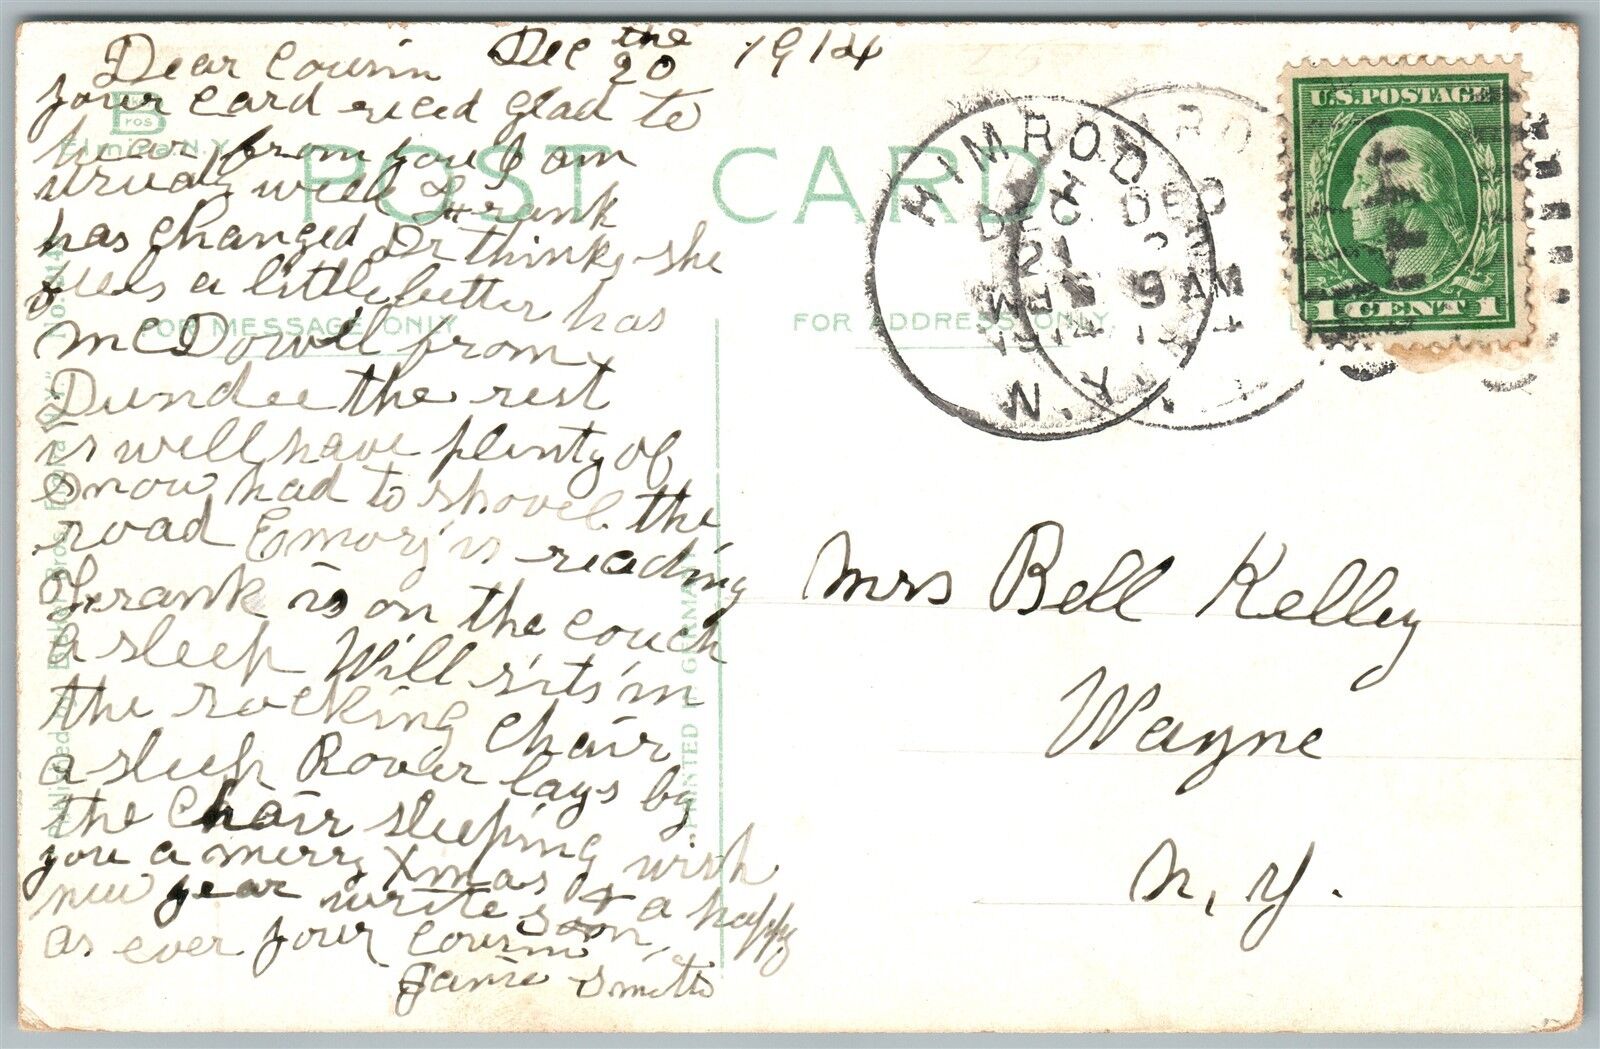 Dec the 20 1914
Dear Cousin
your card reced glad to
hear from you I am
usualy well Frank
has changed Dr thinks she
feels a little better has
McDowel from
Dundee the rest
is well have plenty of
snow had to shovel the
road Emory is reading
Frank is on the couch
a sleep Will sits in
the rocking chair
a sleep Rover lays by
the chair sleeping wish
you a merry Xmas & a happy
new year write soon
as ever your cousin
Janie Smith
POST CARD
FOR MESSAGE ONLY
FOR ADDRESS ONLY
Bros
Elmira, N.Y.
Published by Baker Bros. Elmira
PRINTED IN GERMANY
HIMROD
DEC
21
9 AM
1914
N.Y.
U.S. POSTAGE
1 CENT 1
Mrs Bell Kelley
Wayne
N. Y.